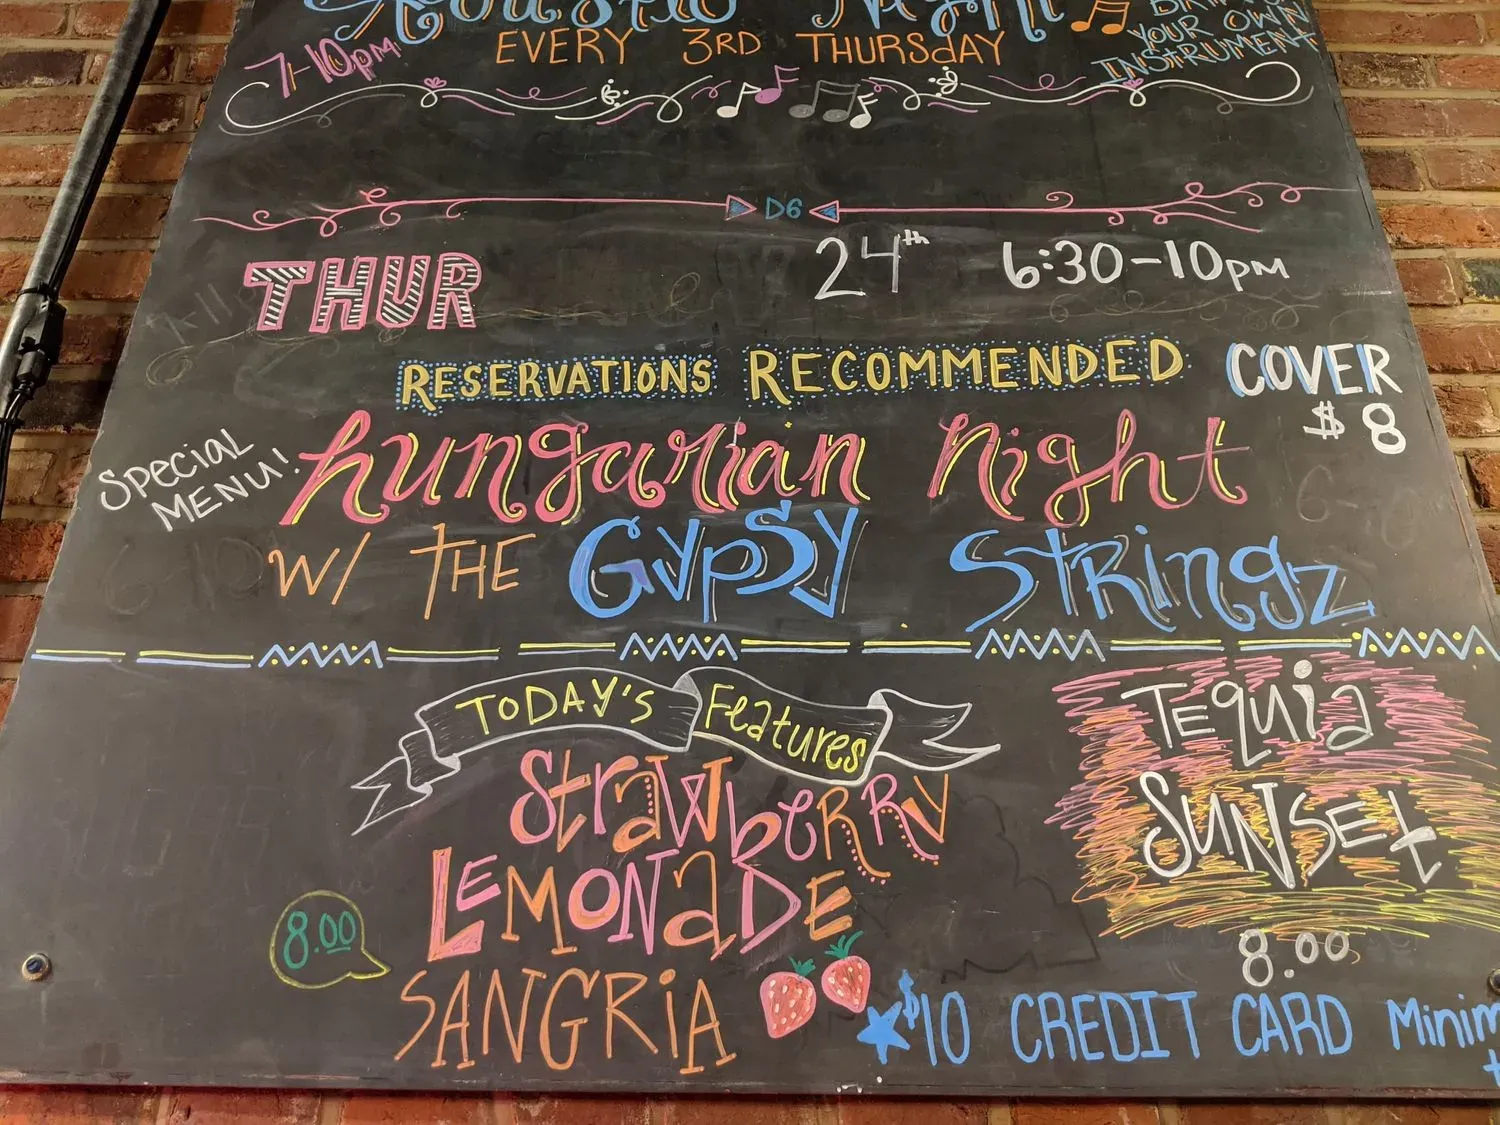 Acoustic Night
BRING
YOUR OWN
INSTRUMENT
7-10pm
EVERY 3RD THURSDAY
D6
THUR 24th 6:30-10pm
RESERVATIONS RECOMMENDED
COVER
$8
Special
MENU!
hungarian Night
w/ THE GypSy StRingz
TODAY'S Features
Strawberry
LEMONADE
SANGRiA
8.00
TEquia
SUNSEt
8.00
$10 CREDIT CARD Minim